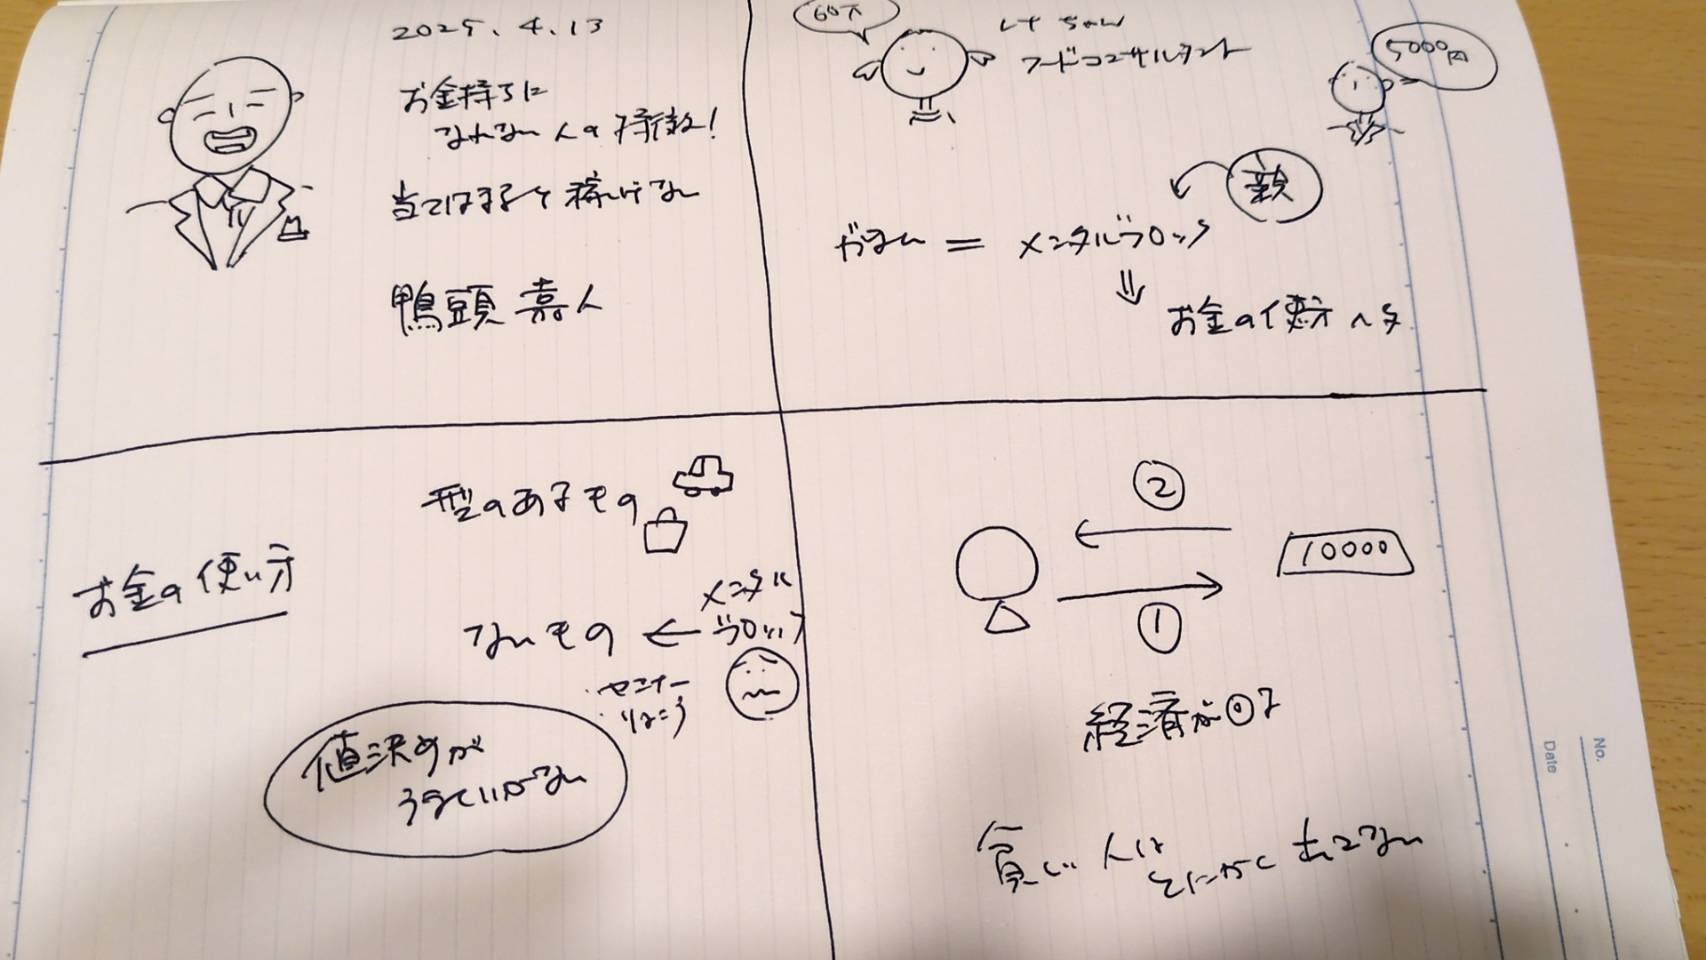 2025.4.13
お金持ちに
なれない人の特徴!
当てはまると稼げない
鴨頭 嘉人
60万
ちゃん
フードコンサルタント
5000円
親
= メンタルブロック
⇓
お金の使い方 ヘタ
お金の使い方
型のあるもの
ないもの ←
メンタル
ブロック
・セミナー
・りょこう
値決めが
うまくいかない
②
10000
①
経済が回る
貧しい人は
とにかく出さない
No.
Date